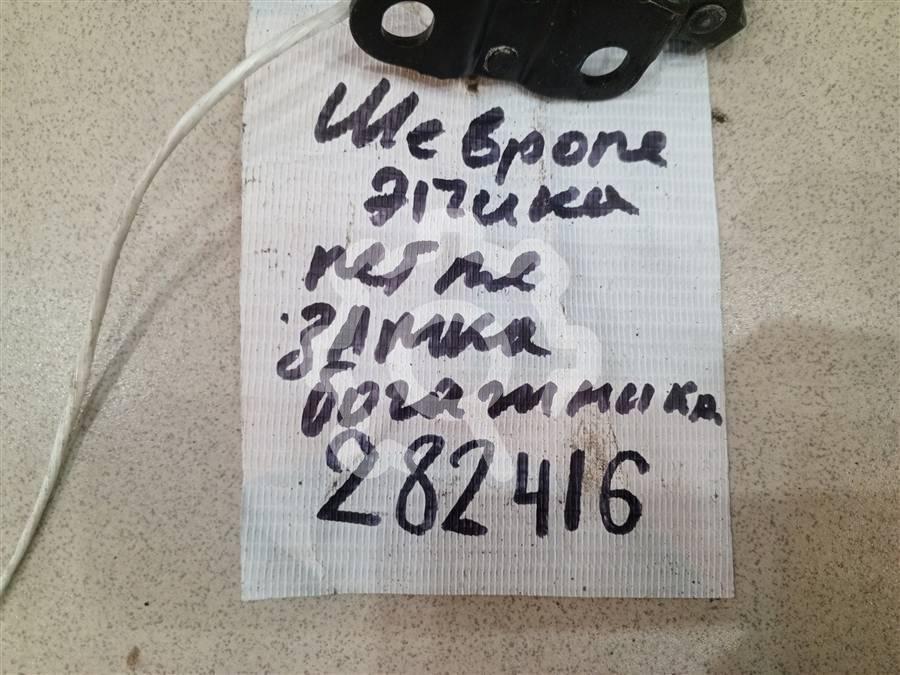 Шевроле
Эпика
петле
замка
богажника
282416